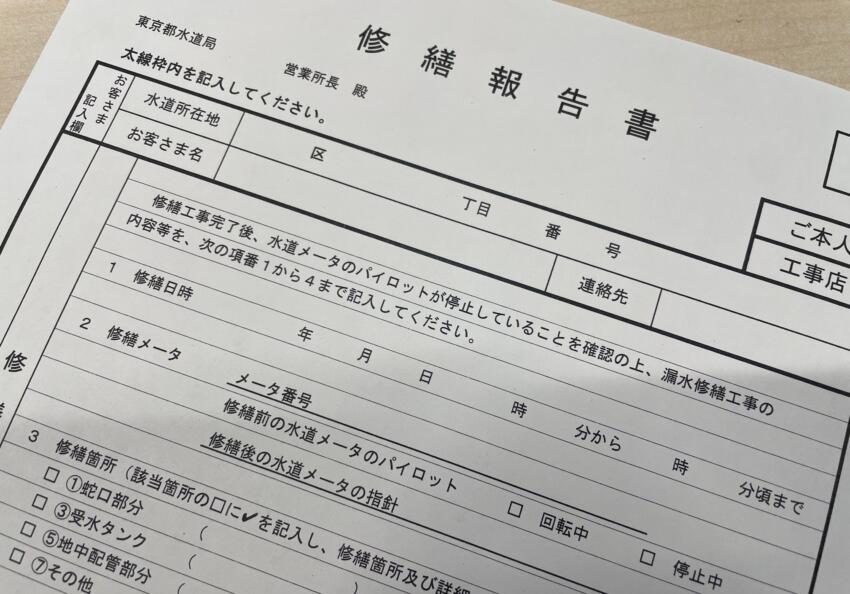 東京都水道局
修繕報告書
営業所長 殿
太線枠内を記入してください。
お客さま
記入欄
水道所在地
区 丁目 番 号
お客さま名
連絡先
ご本人
工事店
修繕工事完了後、水道メータのパイロットが停止していることを確認の上、漏水修繕工事の
内容等を、次の項番1から4まで記入してください。
1 修繕日時 年 月 日 時 分から 時 分頃まで
2 修繕メータ メータ番号
修繕前の水道メータのパイロット □ 回転中 □ 停止中
修繕後の水道メータの指針
3 修繕箇所（該当箇所の□に✔を記入し、修繕箇所及び詳細
□ ①蛇口部分 （
□ ③受水タンク （
□ ⑤地中配管部分 （ ）
□ ⑦その他
修